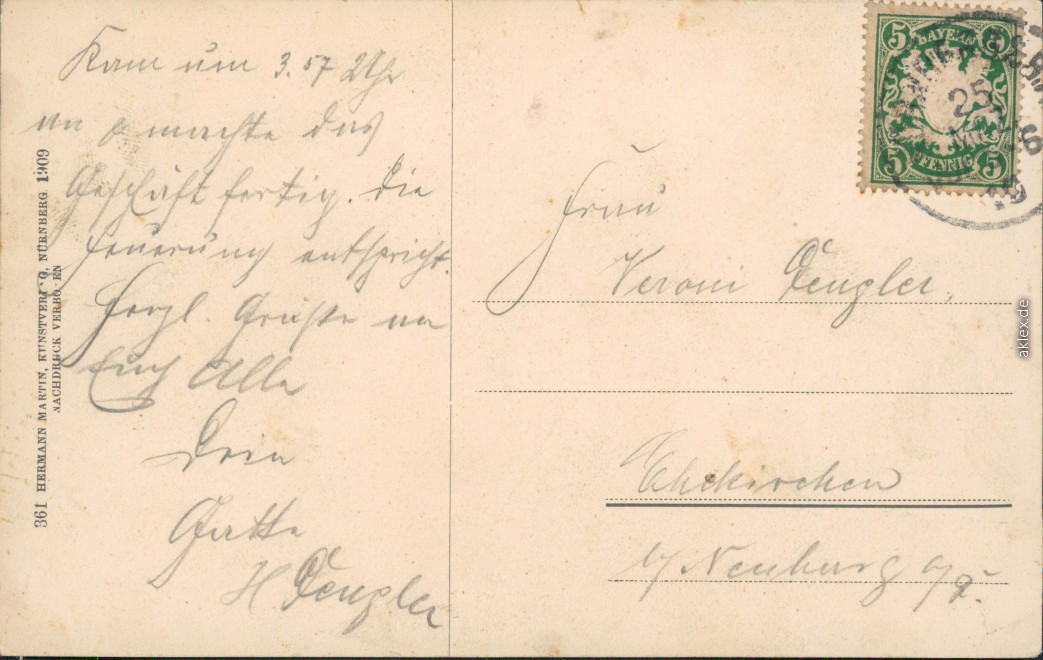 Kam um 3.57 Uhr
an & machte das
Geschäft fertig. Die
Feuerung entspricht.
Herzl. Grüße an
Euch Alle
Dein
Gatte
H Dengler
361 HERMANN MARTIN, KUNSTVERLAG, NÜRNBERG 1909
NACHDRUCK VERBOTEN
5 BAYERN 5
5 PFENNIG 5
25
Frau
Veroni Dengler,
Ehekirchen
b/ Neuburg a/D.
aklex.de